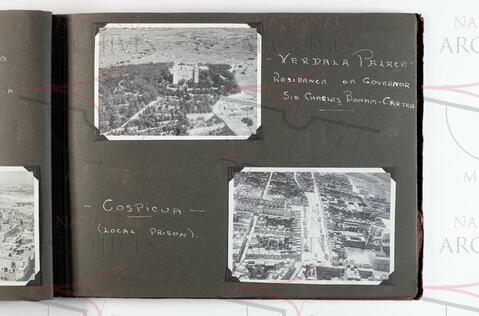 - VERDALA PALACE -
RESIDENCE OF GOVERNOR
SIR CHARLES BONAM-CARTER
- COSPICUA -
(LOCAL PRISON).
NATIONAL
ARCHIVES